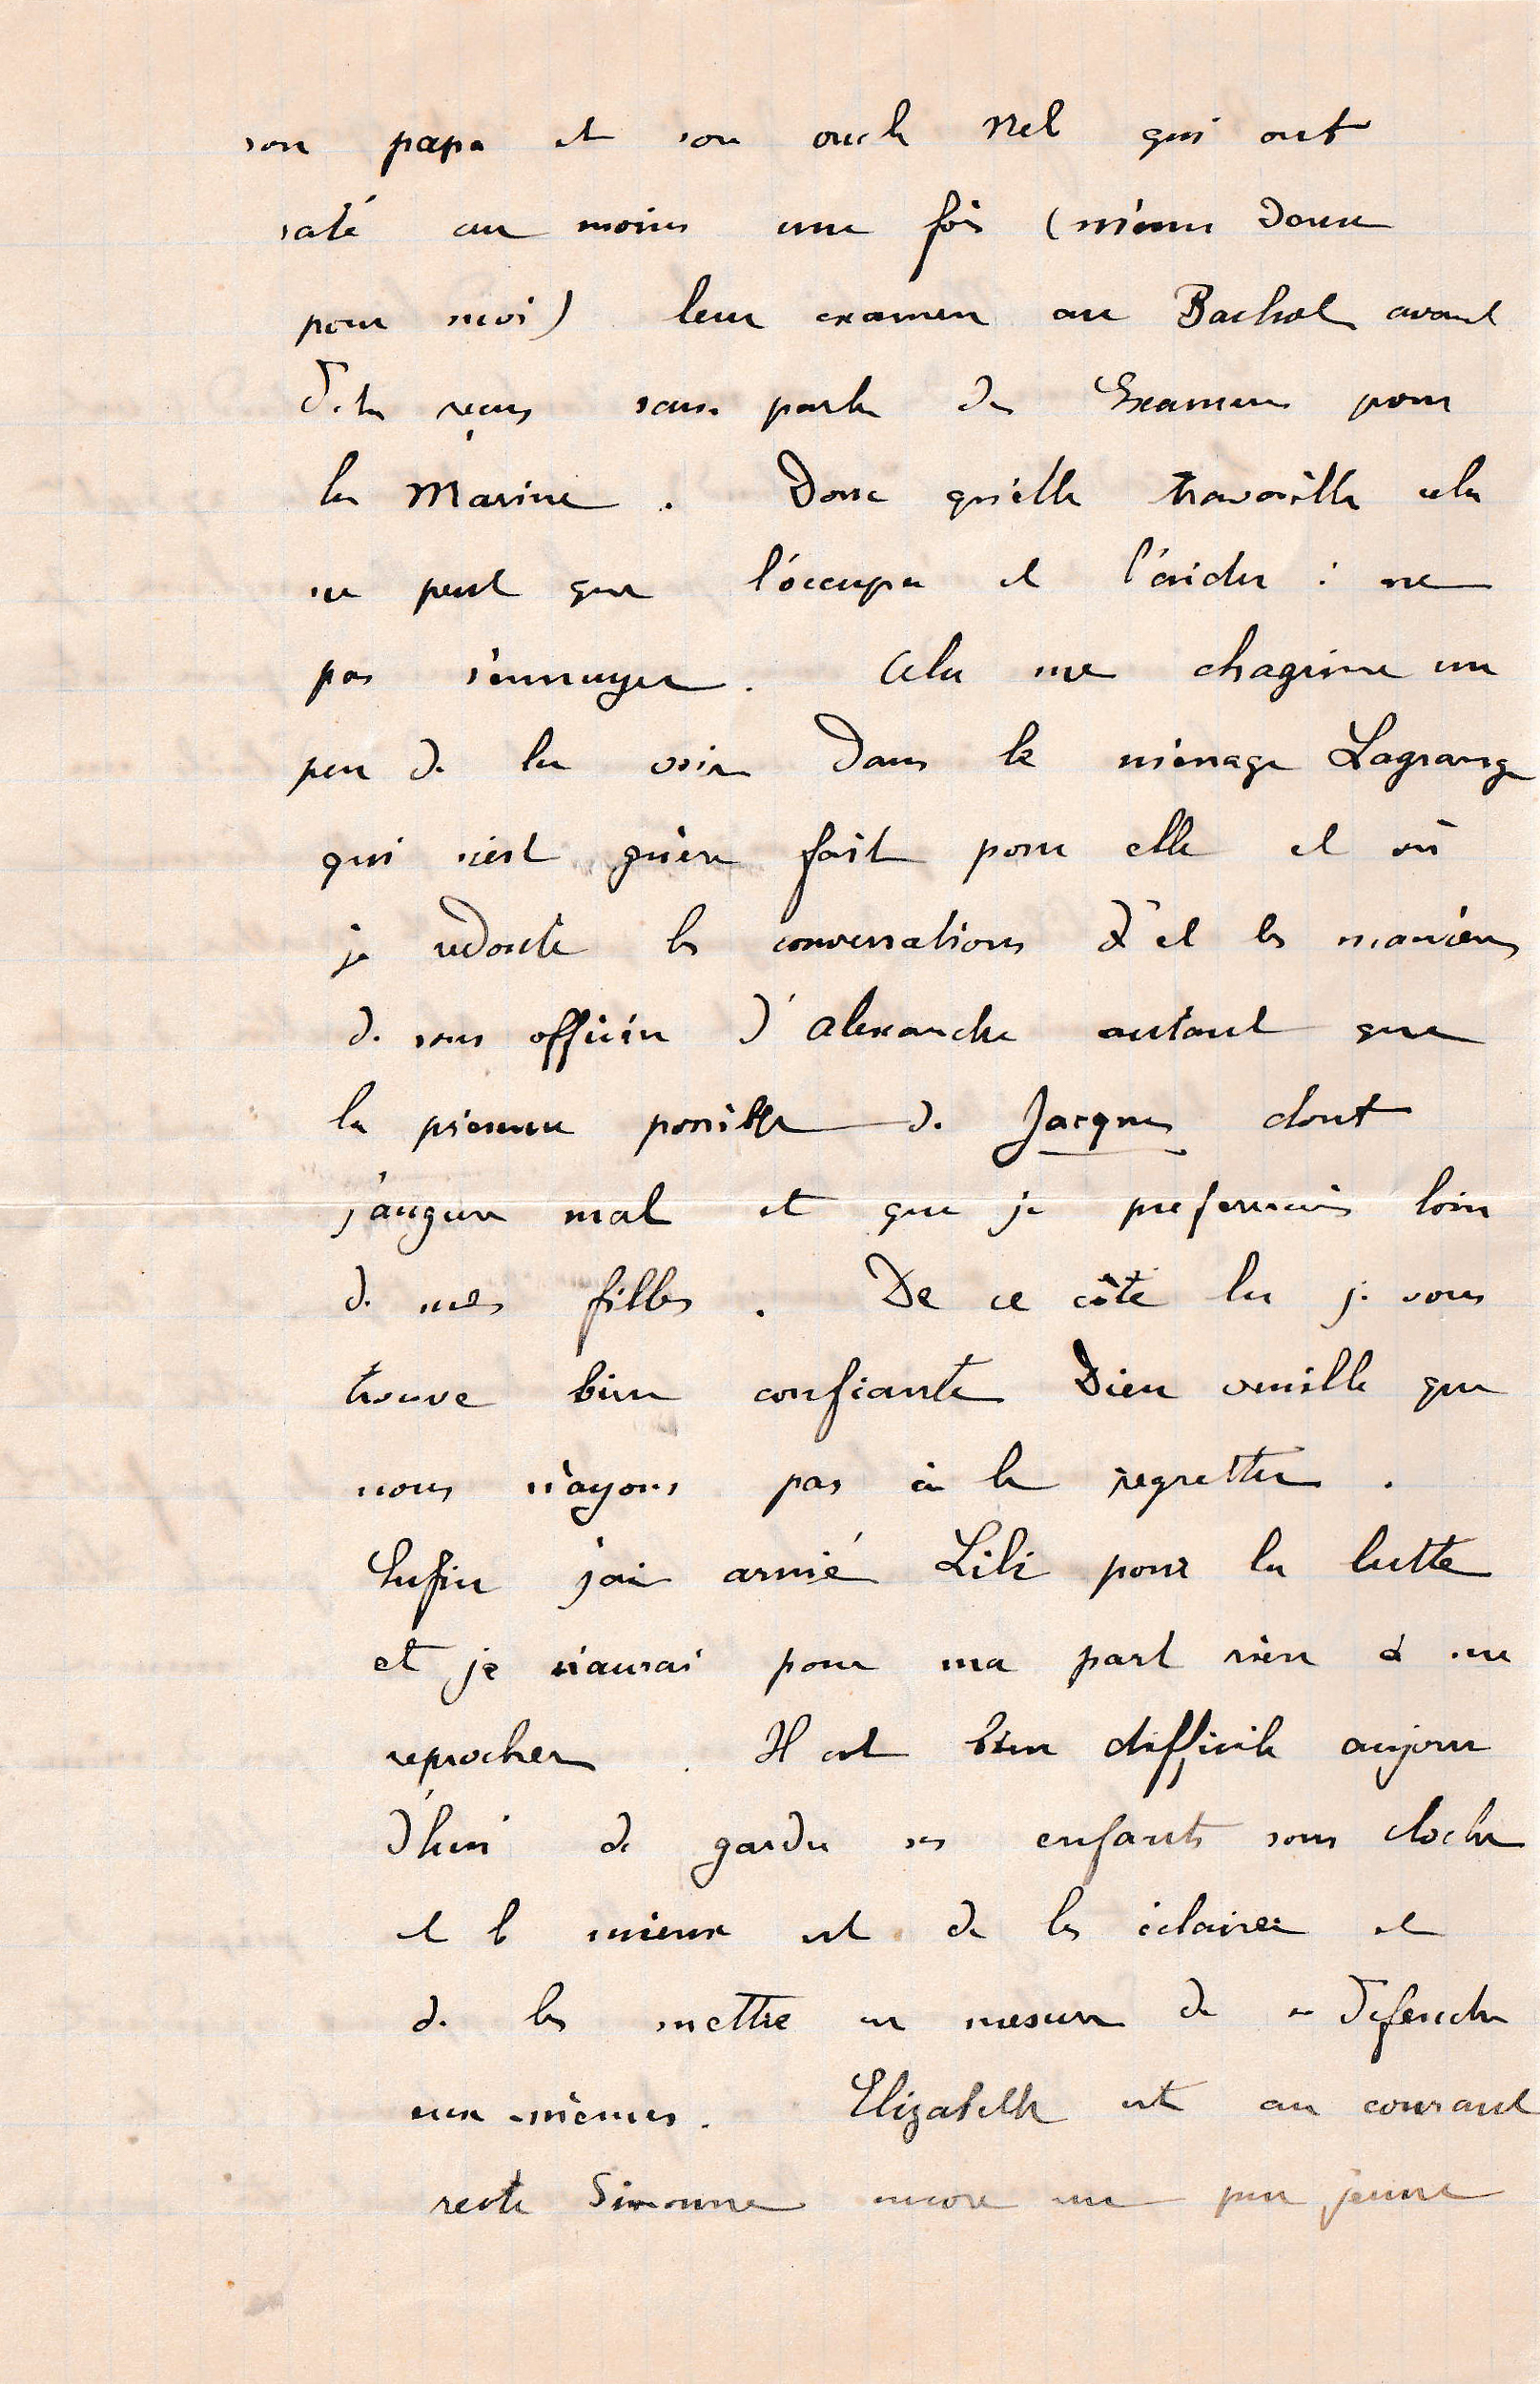 son papa et son oncle Nel qui ont
raté au moins une fois (même deux
pour moi) leur examen au Bachot avant
d'etre reçus sans parler des Examens pour
la Marine. Donc qu'elle travaille cela
ne peut que l'occuper et l'aider : ne
pas s'ennuyer. Cela me chagrine un
peu de la voir dans le ménage Lagrange
qui n'est guère fait pour elle et où
je redoute les conversations et les manières
de sous officier d'Alexandre autant que
la présence possible de Jacques dont
j'augure mal et que je prefererais loin
de mes filles. De ce côté la je vous
trouve bien confiante Dieu veuille que
nous n'ayons pas à le regretter.
Enfin j'ai armé Lili pour la lutte
et je n'aurai pour ma part rien à me
reprocher. Il est bien difficile aujour
d'hui de garder ses enfants sous cloche
et le mieux est de les éclairer et
de les mettre en mesure de se défendre
eux-mêmes. Elizabeth est au courant
reste Simonne encore un peu jeune